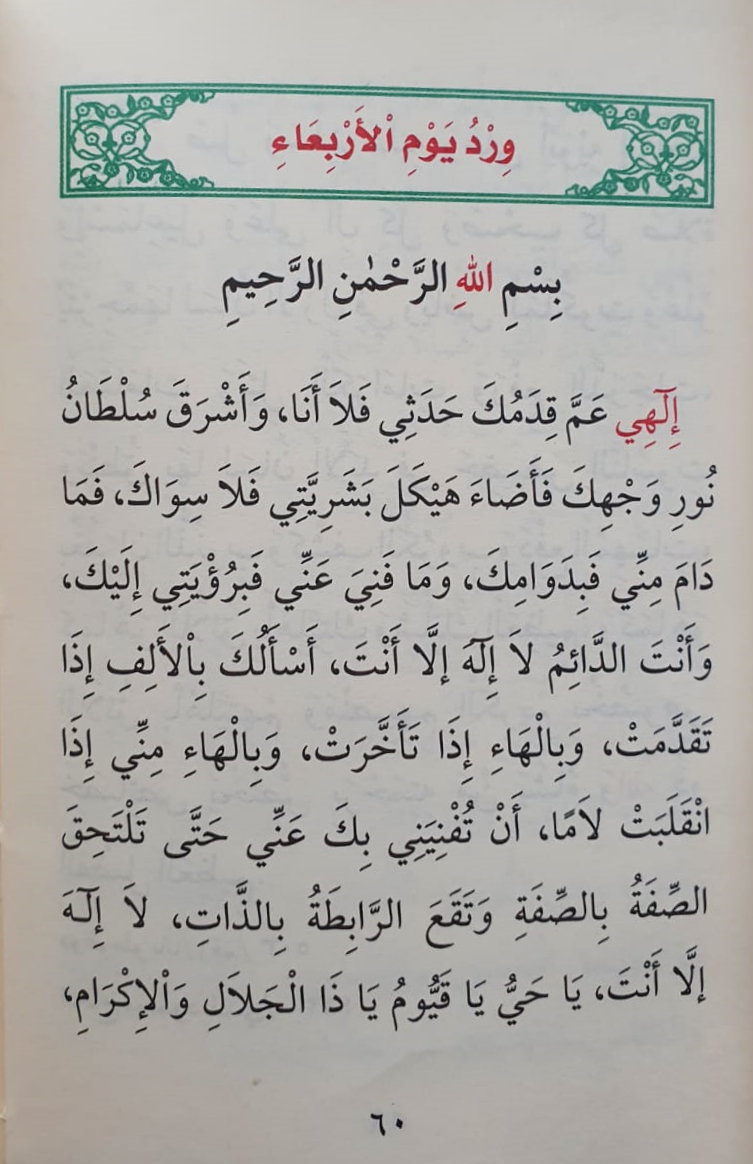 وِرْدُ يَوْمِ اْلأَرْبِعَاءِ
بِسْمِ اللهِ الرَّحْمٰنِ الرَّحِيمِ
إِلٓهِي عَمَّ قِدَمُكَ حَدَثِي فَلاَ أَنَا، وَأَشْرَقَ سُلْطَانُ
نُورِ وَجْهِكَ فَأَضَاءَ هَيْكَلَ بَشَرِيَّتِي فَلاَ سِوَاكَ، فَمَا
دَامَ مِنِّي فَبِدَوَامِكَ، وَمَا فَنِيَ عَنِّي فَبِرُؤْيَتِي إِلَيْكَ،
وَأَنْتَ الدَّائِمُ لاَ إِلٓهَ إلَّا أَنْتَ، أَسْأَلُكَ بِاْلأَلِفِ إِذَا
تَقَدَّمَتْ، وَبِالْهَاءِ إِذَا تَأَخَّرَتْ، وَبِالْهَاءِ مِنِّي إِذَا
انْقَلَبَتْ لاَمًا، أَنْ تُفْنِيَنِي بِكَ عَنِّي حَتَّى تَلْتَحِقَ
الصِّفَةُ بِالصِّفَةِ وَتَقَعَ الرَّابِطَةُ بِالذَّاتِ، لاَ إِلٓهَ
إلَّا أَنْتَ، يَا حَيُّ يَا قَيُّومُ يَا ذَا الْجَلاَلِ وَاْلإِكْرَامِ،
٦٠